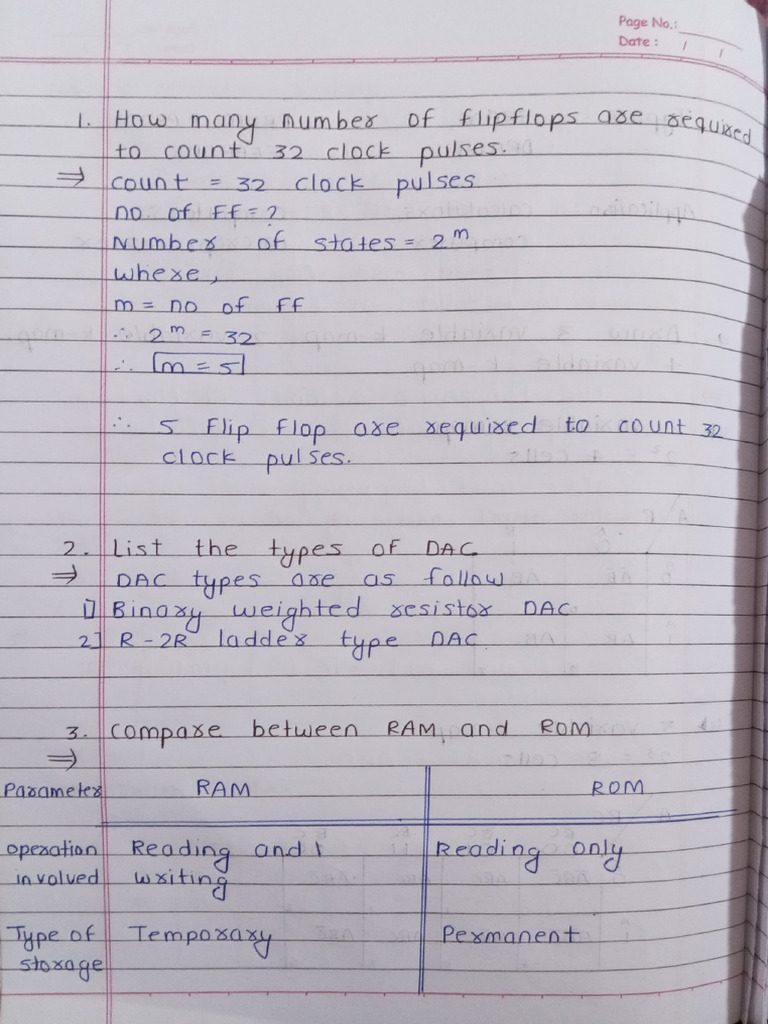 Page No.:
Date : / /
1. How many number of flipflops are required
to count 32 clock pulses.
⇒ count = 32 clock pulses
no of FF = ?
Number of states = 2^m
where,
m = no of FF
∴ 2^m = 32
∴ m = 5
∴ 5 Flip Flop are required to count 32
clock pulses.
2. List the types of DAC
⇒ DAC types are as follow
1] Binary weighted resistor DAC
2] R-2R ladder type DAC.
3. compare between RAM and ROM
⇒
Parameter RAM ROM
operation Reading and Reading only
involved writing
Type of Temporary Permanent
storage